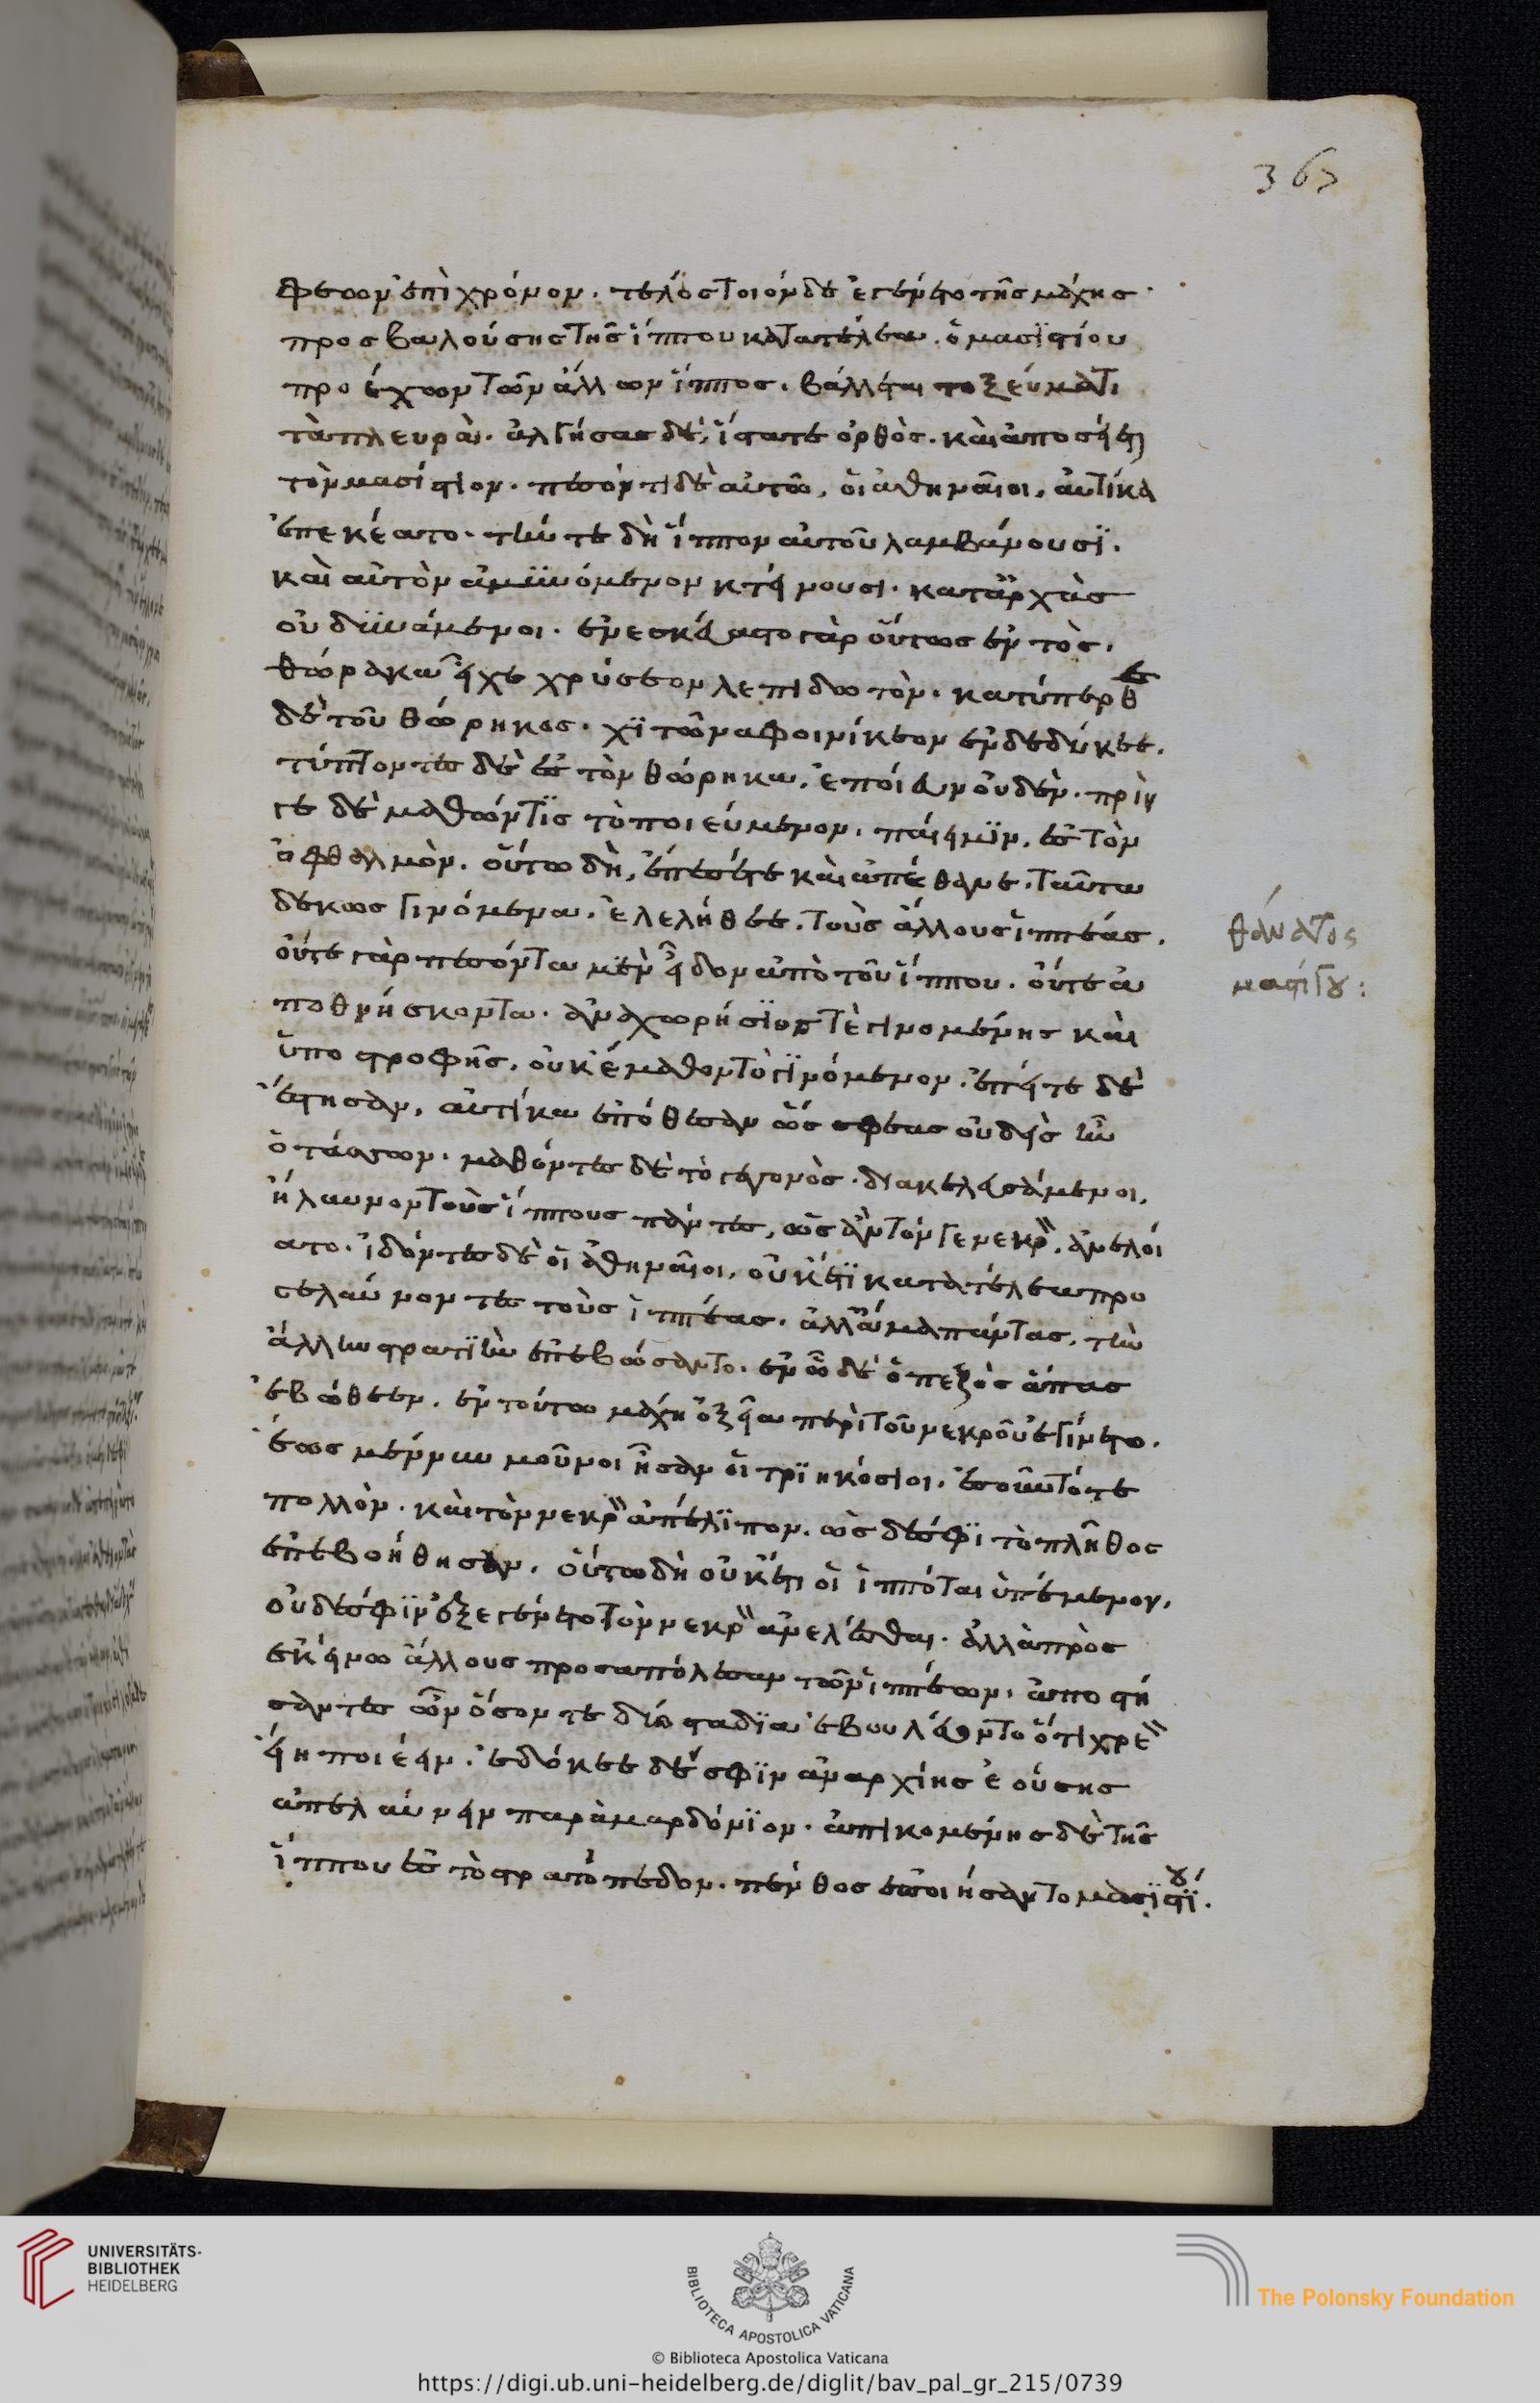 367
φεων ἐπὶ χρόνον. τέλος τοιόνδε ἐγένετο τῆς μάχης.
προσβαλούσης τῆς ἵππου κατὰ τέλεα. ὁ μασιστίου
προέχων τῶν ἄλλων ἵππος. βάλλεται τοξεύματι
τὰ πλευρὰ. ἀλγήσας δὲ, ἵσταταί τε ὀρθὸς. καὶ ἀποσείεται
τὸν μασίστιον. πεσόντι δὲ αὐτῶ, οἱ ἀθηναῖοι, αὐτίκα
ἐπεκέατο. τόν τε δὴ ἵππον αὐτοῦ λαμβάνουσϊ.
καὶ αὐτὸν ἀμϋνόμενον κτείνουσι. κατἀρχὰς
οὐ δϋνάμενοι. ἐνεσκεύαστο γὰρ οὕτως ἐντὸς.
θώρακα εἶχε χρύσεον λεπιδωτὸν. κατύπερθε
δὲ τοῦ θώρηκος. χϊτῶνα φοινίκεον ἐνδεδύκεε.
τύπτοντες δὲ ἐς τὸν θώρηκα, ἐποίευν οὐδὲν. πρίν
γε δὲ μαθών τϊς τὸ ποιεύμενον. παίει μϊν, ἐς τὸν
ὀφθαλμὸν. οὕτω δὴ, ἔπεσέ τε καὶ ἀπέθανε. ταῦτα
δέ κως γινόμενα. ἐλελήθεε. τοὺς ἄλλους ἱππέας.
οὔτε γὰρ πεσόντα μϊν εἶδον ἀπὸ τοῦ ἵππου. οὔτε ἀ
ποθνήσκοντα. ἀναχωρήσϊός τε γινομένης καὶ
ὑποστροφῆς. οὐκ ἔμαθον τὸ γϊνόμενον. ἐπείτε δὲ
ἔστησαν, αὐτίκα ἐπόθεσαν ὥς σφεας οὐδεὶς ἦν
ὁ τάσσων. μαθόντες δὲ τὸ γεγονὸς. διακελευσάμενοι.
ἤλαυνον τοὺς ἵππους πάντες, ὡς ἂν τόν γε νεκρὸν, ἀνελοί
ατο. ἰδόντες δὲ οἱ ἀθηναῖοι, οὐκέτϊ κατὰ τέλεα προ
σελαύνοντας τοὺς ἱππέας. ἀλλἅμα πάντας. τὴν
ἄλλην στρατϊὴν ἐπεβώσαντο. ἐν ὧ δὲ ὁ πεζὸς ἅπας
ἐβώθεεν. ἐν τούτω μάχη ὀξεῖα περὶ τοῦ νεκροῦ ἐγίνετο.
ἕως μέν νυν μοῦνοι ἦσαν οἱ τρϊηκόσιοι. ἑσσοῦντό τε
πολλὸν. καὶ τὸν νεκρὸν ἀπέλϊπον. ὡς δέ σφϊ τὸ πλῆθος
ἐπεβοήθησαν. οὕτω δὴ οὐκέτι οἱ ἱππόται ὑπέμενον.
οὐδέ σφϊν ἐξεγένετο τὸν νεκρὸν ἀνελέσθαι. ἀλλὰ πρὸς
ἐκείνω ἄλλους προσαπόλεσαν τῶν ἱππέων. ἀποστή
σαντες ὦν ὅσον τε δύο στάδϊα ἐβουλεύοντο ὅ τι χρε
είη ποιέειν. ἐδόκεε δέ σφϊν ἀναρχίης ἐούσης
ἀπελαύνειν παρὰ μαρδόνϊον. ἀπικομένης δὲ τῆς
ἵππου ἐς τὸ στρατόπεδον. πένθος ἐποιήσαντο μασϊστϊου.
θάνατος
μασιστίου:
UNIVERSITÄTS-
BIBLIOTHEK
HEIDELBERG
BIBLIOTECA APOSTOLICA VATICANA
The Polonsky Foundation
© Biblioteca Apostolica Vaticana
https://digi.ub.uni-heidelberg.de/diglit/bav_pal_gr_215/0739